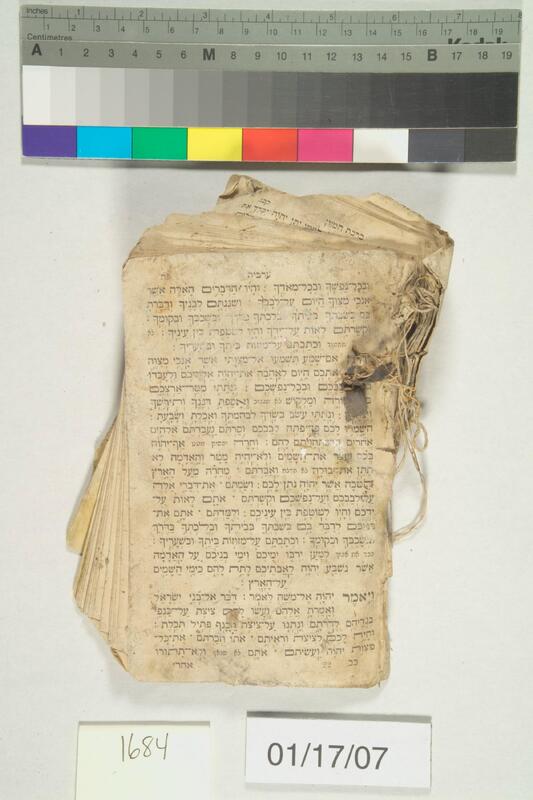 inches 1 2 3 4 5 6 7 8
Centimetres 1 2 3 4 5 6 7 8 9 10 11 12 13 14 15 16 17 18 19
Kodak
A 1 2 3 4 5 6 M 8 9 10 11 12 13 14 15 B 17 18 19
ברכת המזון
ערבית
ובכל נפשך ובכל מאדך : והיו הדברים האלה אשר
אנכי מצוך היום על לבבך : ושננתם לבניך ודברת
בם בשבתך בביתך ובלכתך בדרך ובשכבך ובקומך :
וקשרתם לאות על ידך והיו לטטפת בין עיניך :
וכתבתם על מזוזות ביתך ובשעריך :
אם שמע תשמעו אל מצותי אשר אנכי מצוה
אתכם היום לאהבה את יהוה אלהיכם ולעבדו
לבבכם ובכל נפשכם : ונתתי מטר ארצכם
ומלקוש ואספת דגנך ותירשך
ונתתי עשב בשדך לבהמתך ואכלת ושבעת :
השמרו לכם פן יפתה לבבכם וסרתם ועבדתם אלהים
אחרים והשתחויתם להם : וחרה אף יהוה
בכם ועצר את השמים ולא יהיה מטר והאדמה לא
תתן את יבולה ואבדתם מהרה מעל הארץ
הטבה אשר יהוה נתן לכם : ושמתם את דברי אלה
על לבבכם ועל נפשכם וקשרתם אתם לאות על
ידכם והיו לטוטפת בין עיניכם : ולמדתם אתם את
בניכם לדבר בם בשבתך בביתך ובלכתך בדרך
ובשכבך ובקומך : וכתבתם על מזוזות ביתך ובשעריך :
למען ירבו ימיכם וימי בניכם על האדמה
אשר נשבע יהוה לאבתיכם לתת להם כימי השמים
על הארץ :
ויאמר יהוה אל משה לאמר : דבר אל בני ישראל
ואמרת אלהם ועשו להם ציצת על כנפי
בגדיהם לדרתם ונתנו על ציצת הכנף פתיל תכלת :
והיה לכם לציצת וראיתם אתו וזכרתם את כל
מצות יהוה ועשיתם אתם ולא תתורו
כב 22 אחרי
1684
01/17/07